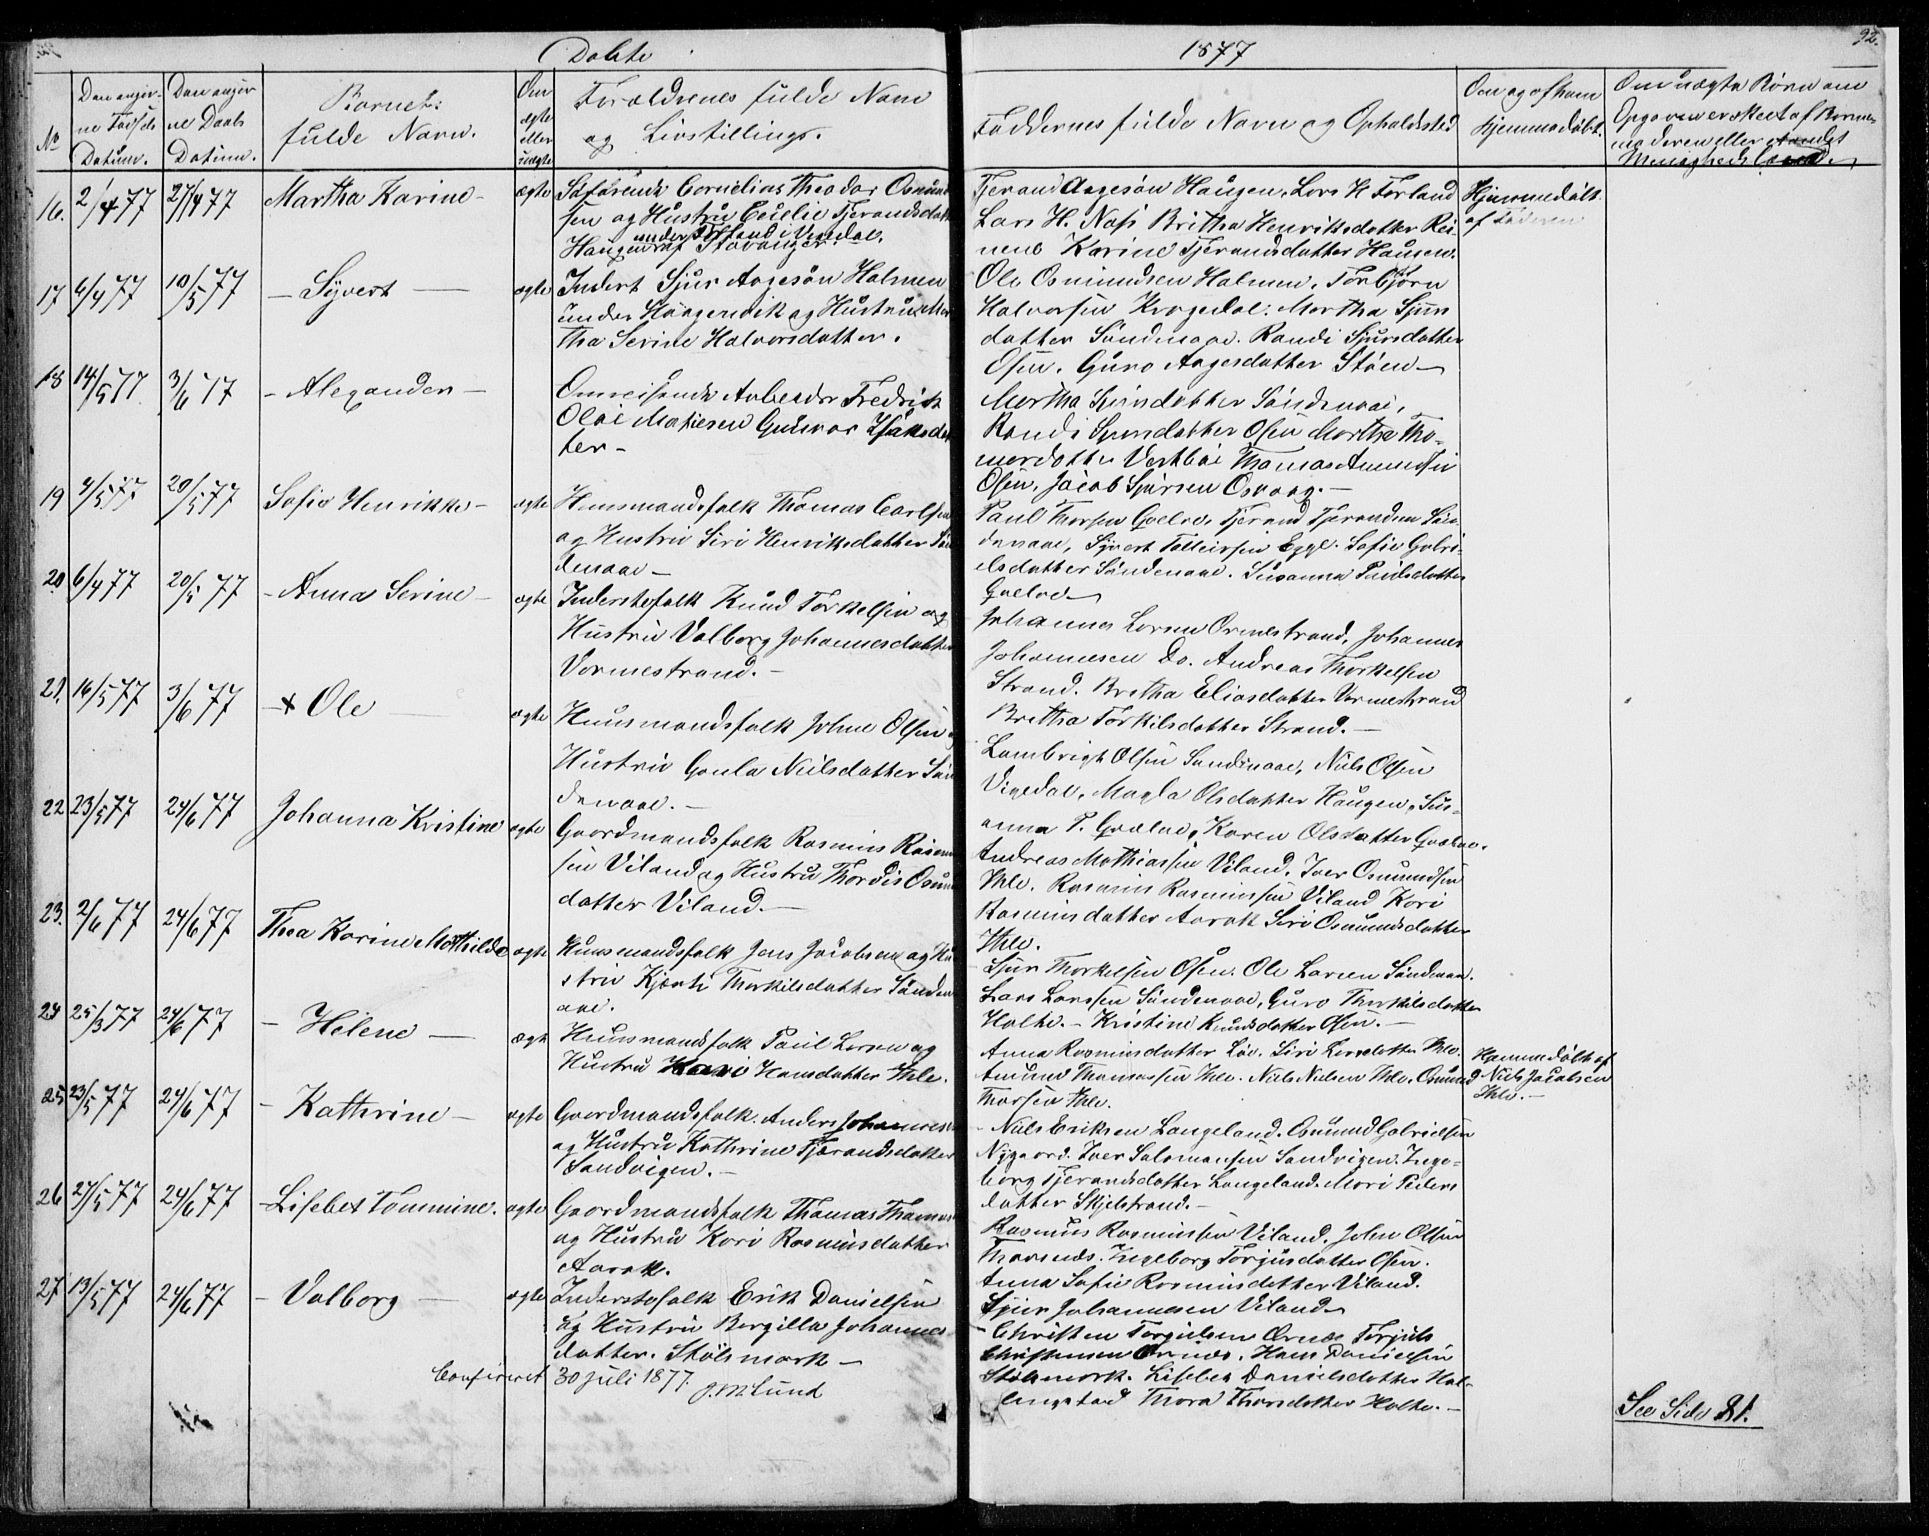 Døbte
1877
92.
No
Den angivne Fødsels Datum.
Den angivne Daabs Datum.
Barnets fulde Navn.
Om ægte eller uægte
Forældrenes fulde Navn og Livsstilling.
Faddernes fulde Navn og Opholdssted
Om og af hvem hjemmedøbt.
Om uægte Børn om Opgaven er skeet af Barnemoderen eller
16. 2/4 77 27/4 77 Martha Karine - ægte
Søfarende Cornelius Theodor Osmund
sen og Hustru Cecilie Tjerandsdatter
under Førland i Vigedal.
Haugen af Stavanger.
Tjerand Aagesøn Haugen, Lars H. Førland
Lars H. Næss Brittha Henriksdatter
Karine Tjerandsdatter Haugen.
Hjemmedøbt
af Faderen
17 6/4 77 10/5 77 - Syvert - ægte
Inderst Sjur Aagesøn Holmen
under og Hustru Mar
tha Serine Halvorsdatter.
Ole Osmundsen Holmen, Torbjørn
Halvorsen Krogedal. Martha Sjurs
datter Søndenaae. Randi Sjursdatter
Osen. Guro Aagesdatter Støen -
18 14/5 77 3/6 77 - Alexander -
Omreisende Arbeider Fredrik
Olai Matiesen Gunvor Isaksdat
ter -
Martha Sjursdatter Søndenaae,
Randi Sjursdatter Osen Martha Tho-
Vestbøe Thomas Amundsen
Osen, Jacob Sjursen Osvaag. -
19 4/5 77 20/5 77 Sofie Henrikke - ægte
Huusmandsfolk Thomas Carlsen
og Hustru Siri Henriksdatter Søn
denaae -
Paul Thorsen Qvelve, Tjerand Tjerandsen Søn
denaae, Syvert Tolleivsen Egge. Sofie Gabri-
elsdatter Søndenaae. Susanna Paulsdatter
Qvelve -
20. 6/4 77 20/5 77 - Anna Serine - ægte
Inderstefolk Knud Torkelsen og
Hustru Valborg Johannesdatter
Vormestrand. -
Johannes Larsen Ormestrand, Johannes
Johannesen Do. Andreas Thorkelsen
Strand. Bretha Eliasdatter Vormestrand
Brettha Torkilsdatter Strand. -
21. 16/5 77 3/6 77 - x Ole - ægte
Huusmandsfolk Johne Olsen
Hustru Gunla Nielsdatter Søn
denaae. -
Lambrigt Olsen Sandenaae, Niels Olsen
Vigedal, Magla Olsdatter Haugen, Sus-
anna P. Qvelve, Karen Olsdatter Qvelve.
22 23/5 77 24/6 77 Johanna Kristine ægte
Gaardmandsfolk Rasmus Rasmus
sen Viland og Hustru Thordis Osmunds
datter Viland. -
Andreas Mathiassen Viland, Iver Osmundsen
Ihle. Rasmus Rasmussen Viland Kari
Rasmusdatter Aarak Siri Osmundsdatter
Ihle.
23. 2/6 77 24/6 77 Thea Karine Mathilde ægte
Huusmandsfolk Jens Jacobsen og Hu
stru Thorkilsdatter Sønden
aae.
- Sjur Thorkelsen Osen. Ole Larsen Søndenaae.
Lars Larssen Søndenaae, Guro Thorkilsdatter
Holte. - Kristine Knudsdatter Osen. -
24 25/3 77 24/6 77 - Helene - ægte
Huusmandsfolk Paul Larsen og
Hustru Kari Hansdatter Ihle.
Anna Rasmusdatter Løv. Siri Larsdatter Ihle.
Amund Thomassen Ihle. Niels Nielsen Ihle. Osmund
Thorsen Ihle.
Hjemmedøbt af
Niels Jacobsen
Ihle. -
25 23/5 77 24/6 77 - Kathrine - ægte
Gaardmandsfolk. Anders Johannes
og Hustru Kathrine Tjerandsdatter
Sandvigen. -
- Niels Eriksen Langeland. Osmund Gabrielsen
Nygaard. Iver Salomonsen Sandvigen. Inge-
borg Tjerandsdatter Langeland. Mari Peders
datter Skjelstrand. -
26 27/5 77 24/6 77 - Lisebet Tommine. ægte
Gaardmandsfolk Thomas Thomas
og Hustru Kari Rasmusdatter
Aarak.
Rasmus Rasmussen Viland. John Olsen
Ingeborg Torjusdatter Osen.
Anna Sofie Rasmusdatter Viland.
Sjur Johannesen Viland
27 13/5 77 24/6 77 - Valborg - ægte
Inderstefolk Erik Danielsen
og Hustru Bergilla Johannes
datter. Stølsmark -
- Christen Torgielsen Ørnes Torjuls
Christensen Ørnes. Hans Danielsen
Stølsmork. Lisebet Danielsdatter Hal-
lingstad Thora Thorsdatter Holte. -
Confereret 30 Juli 1877. J. M. Lund
See Side 81.